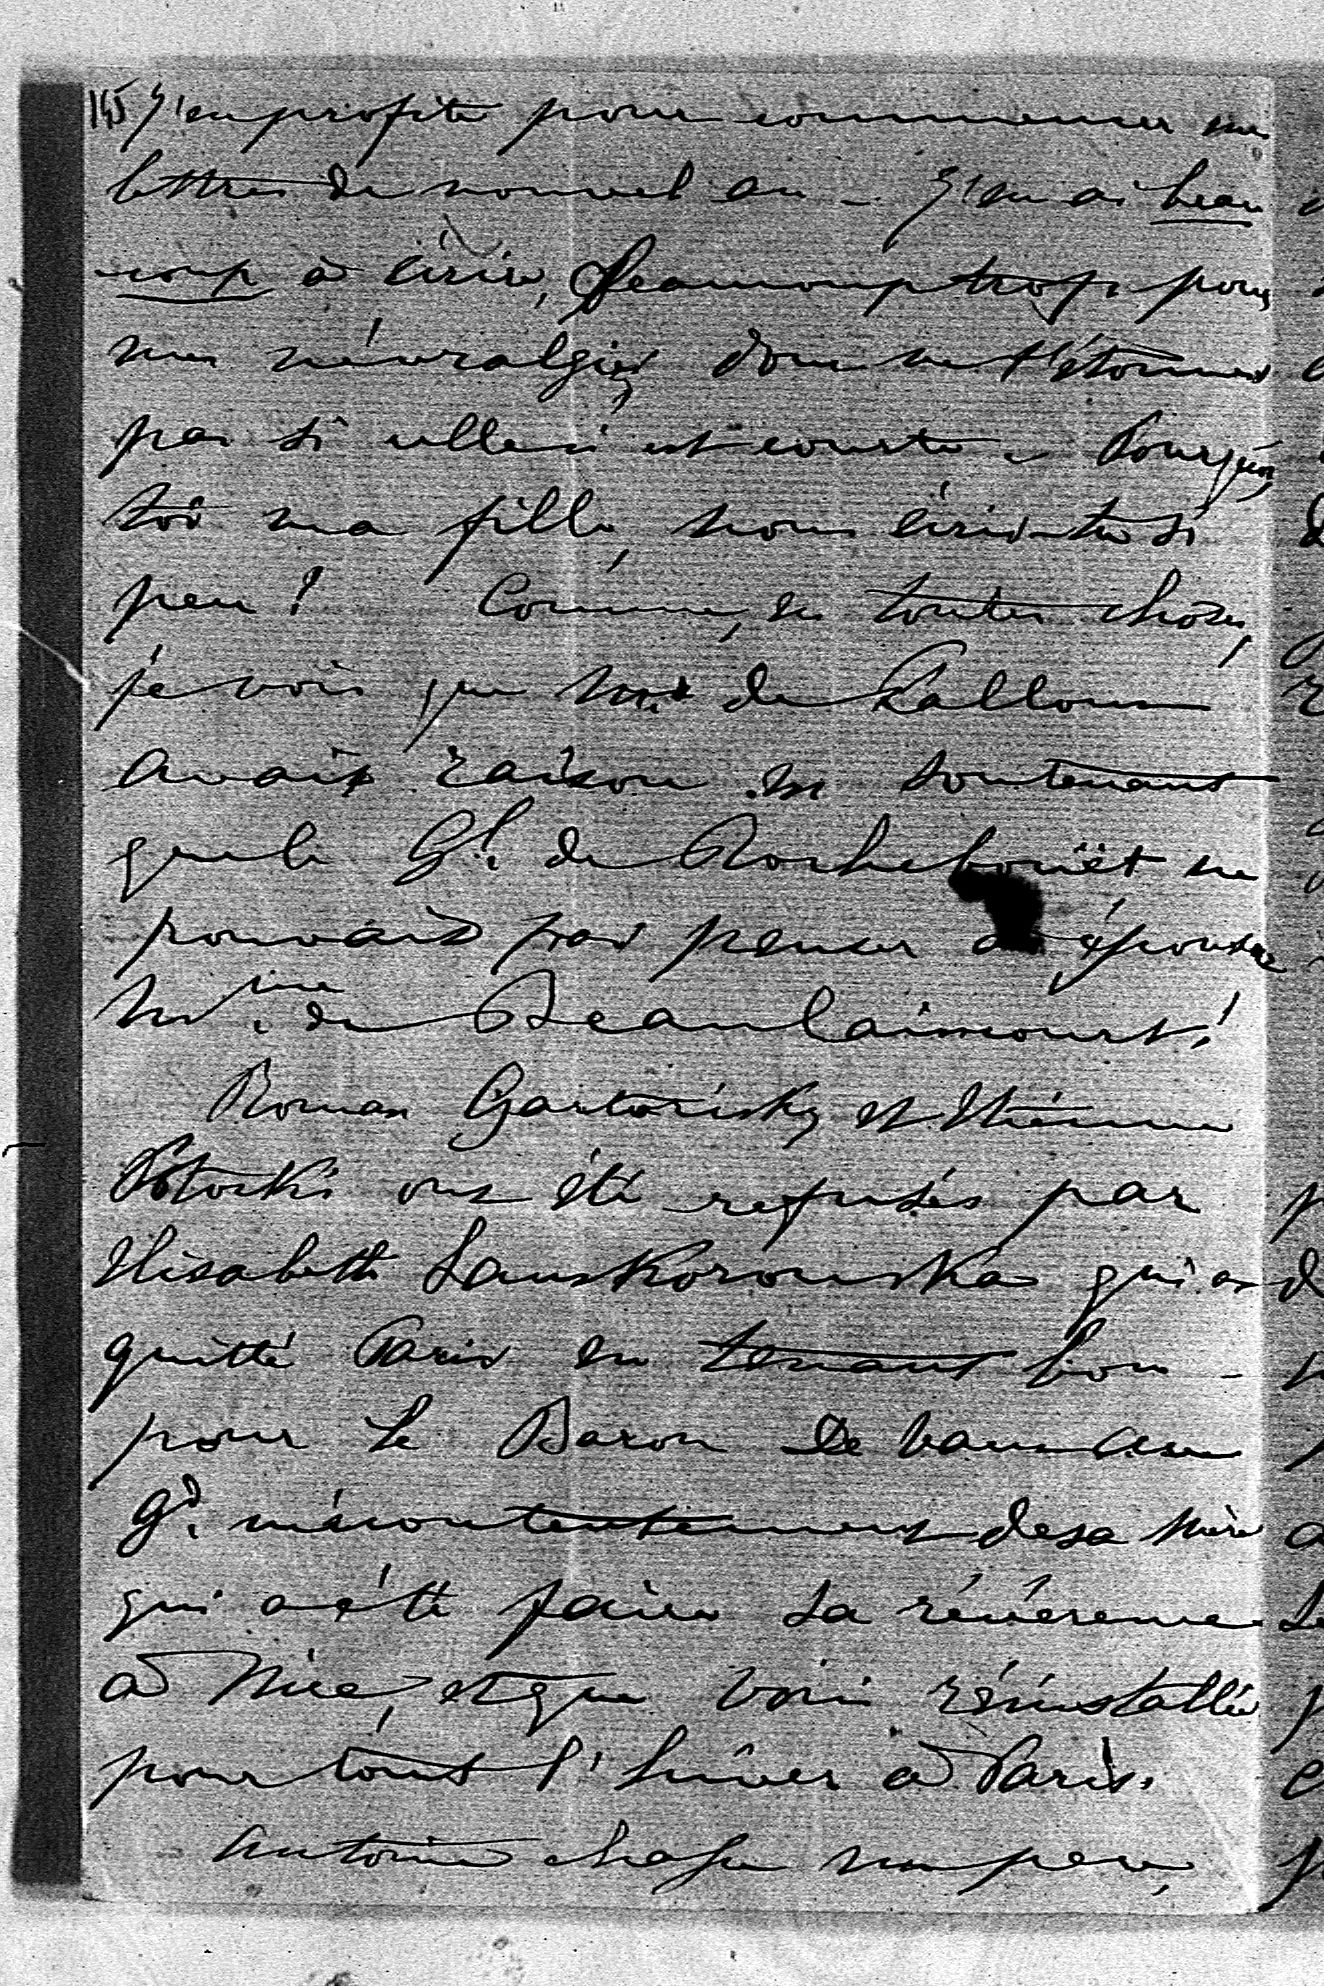 145 J'en profite pour commencer mes
lettres de nouvel an - J'en ai beau
-coup à écrire, beaucoup trop pour
mes névralgies, donc ne t'étonnes
pas si celle ci est courte - Pourquoi,
toi ma fille, nous écris-tu si
peu ? Comme, en toutes choses,
je vois que Mr de Falloux
avait raison en soutenant
que le Gl. de Rochebouët ne
pouvait pas penser à épouser
Mme. de Beaulaincourt !
Roman Czartorisky et Etienne
Potocki ont été refusés par
Elisabeth Lanskoronska qui a
quitté Paris en tenant bon -
pour le Baron De Vaux au
gd. mécontentement de sa mère
qui a été faire sa révérence
à Nice, et que voici réinstallée
pour tout l'hiver à Paris.
Antoine chasse un peu,